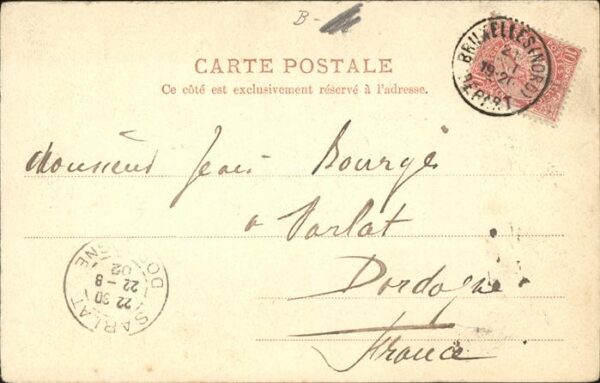 B-
CARTE POSTALE
Ce côté est exclusivement réservé à l'adresse.
BRUXELLES (NORD)
DEPART
Monsieur Jean Bourgé
à Sarlat
Dordogne
France
SARLAT
DORDOGNE
22 30
22 - 8
02